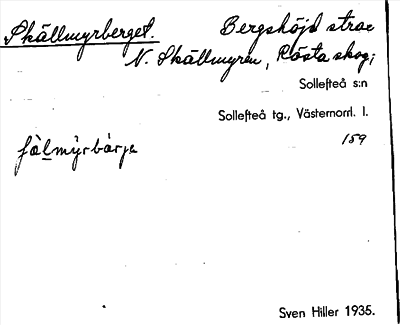 Skällmyrberget. Bergshöjd strax
N. Skällmyren, Rösta skog;
Sollefteå s:n
Sollefteå tg., Västernorrl. l.
159
fä̀l̲my̆rbär̀ja
Sven Hiller 1935.